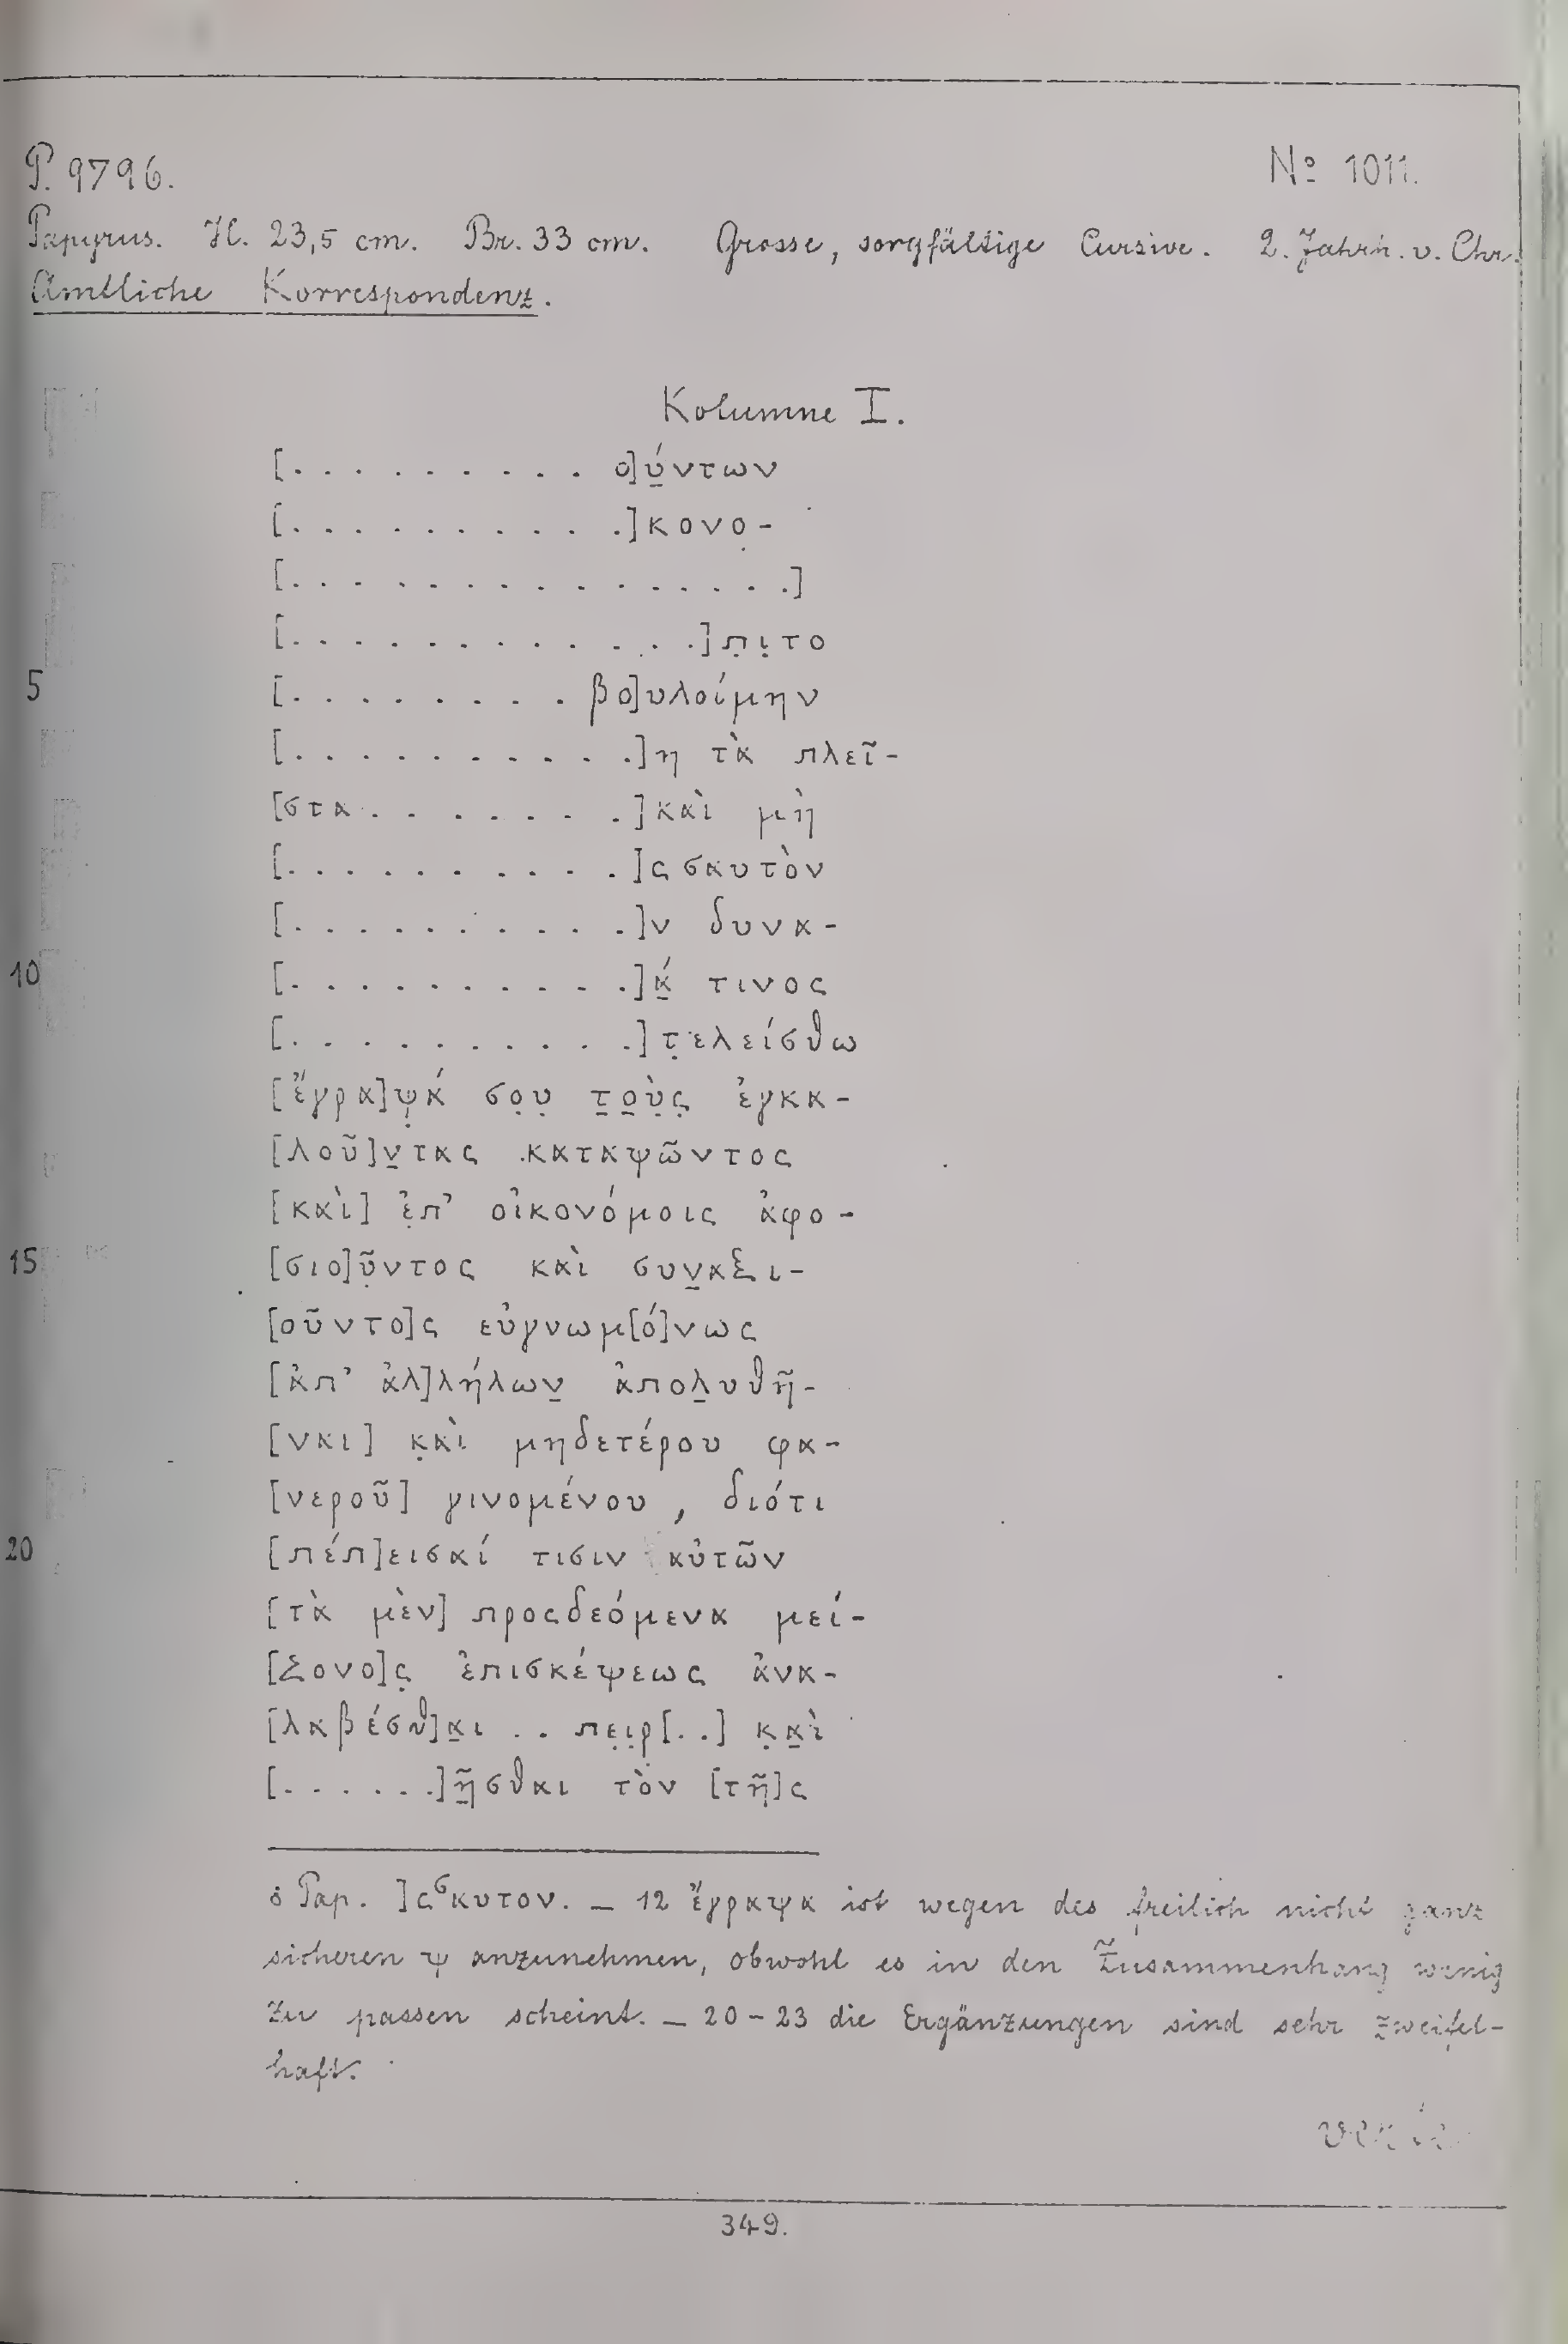 P. 9796. № 1011.
Papyrus. H. 23,5 cm. Br. 33 cm. Grosse, sorgfältige Cursive. 2. Jahrh. v. Chr.
Amtliche Korrespondenz.
Kolumne I.
[. . . . . . . . . ο]ύ̲ντων
[. . . . . . . . . .]κονο̣-
[. . . . . . . . . . . . . . .]
[. . . . . . . . . . . .]π̣ι̣το
5 [. . . . . . . . βο]υλοίμην
[. . . . . . . . . .]η τὰ πλεῖ-
[στα . . . . . . .]καὶ μὴ
[. . . . . . . . . .]ς σαυτὸν
[. . . . . . . . . .]ν δυνα-
10 [. . . . . . . . . .]ά̲ τινος
[. . . . . . . . . .]τ̣ελείσθω
[ἔγρα]ψ̣ά σο̣υ̣ τ̲ο̲ὺ̣ς̣ ἐγκα-
[λοῦ]ν̲τας καταψῶντος
[καὶ] ἐ̣π’ οἰκονόμοις ἀφο-
15 [σιο]ῦ̣ντος καὶ συν̲αξι-
[οῦντο]ς εὐγνωμ[ό]νως
[ἀπ’ ἀλ]λήλων̲ ἀπολ̲υθῆ-
[ναι] κ̣αὶ μηδετέρου φα-
[νεροῦ] γινομένου, διότι
20 [πέπ]εισαί τισιν αὐτῶν
[τὰ μὲν] προςδεόμενα μεί-
[ζονο]ς̣ ἐπισκέψεως ἀνα-
[λαβέσθ]α̲ι . . πε̣ι̣ρ̣[. .] κ̣α̲ὶ
[. . . . . .]ῆ̲σθαι τὸν [τῆ]ς
8 Pap. ]ςσαυτον. — 12 ἔγραψα ist wegen des freilich nicht ganz
sicheren ψ anzunehmen, obwohl es in den Zusammenhang wenig
zu passen scheint. — 20-23 die Ergänzungen sind sehr zweifel-
haft.
349.